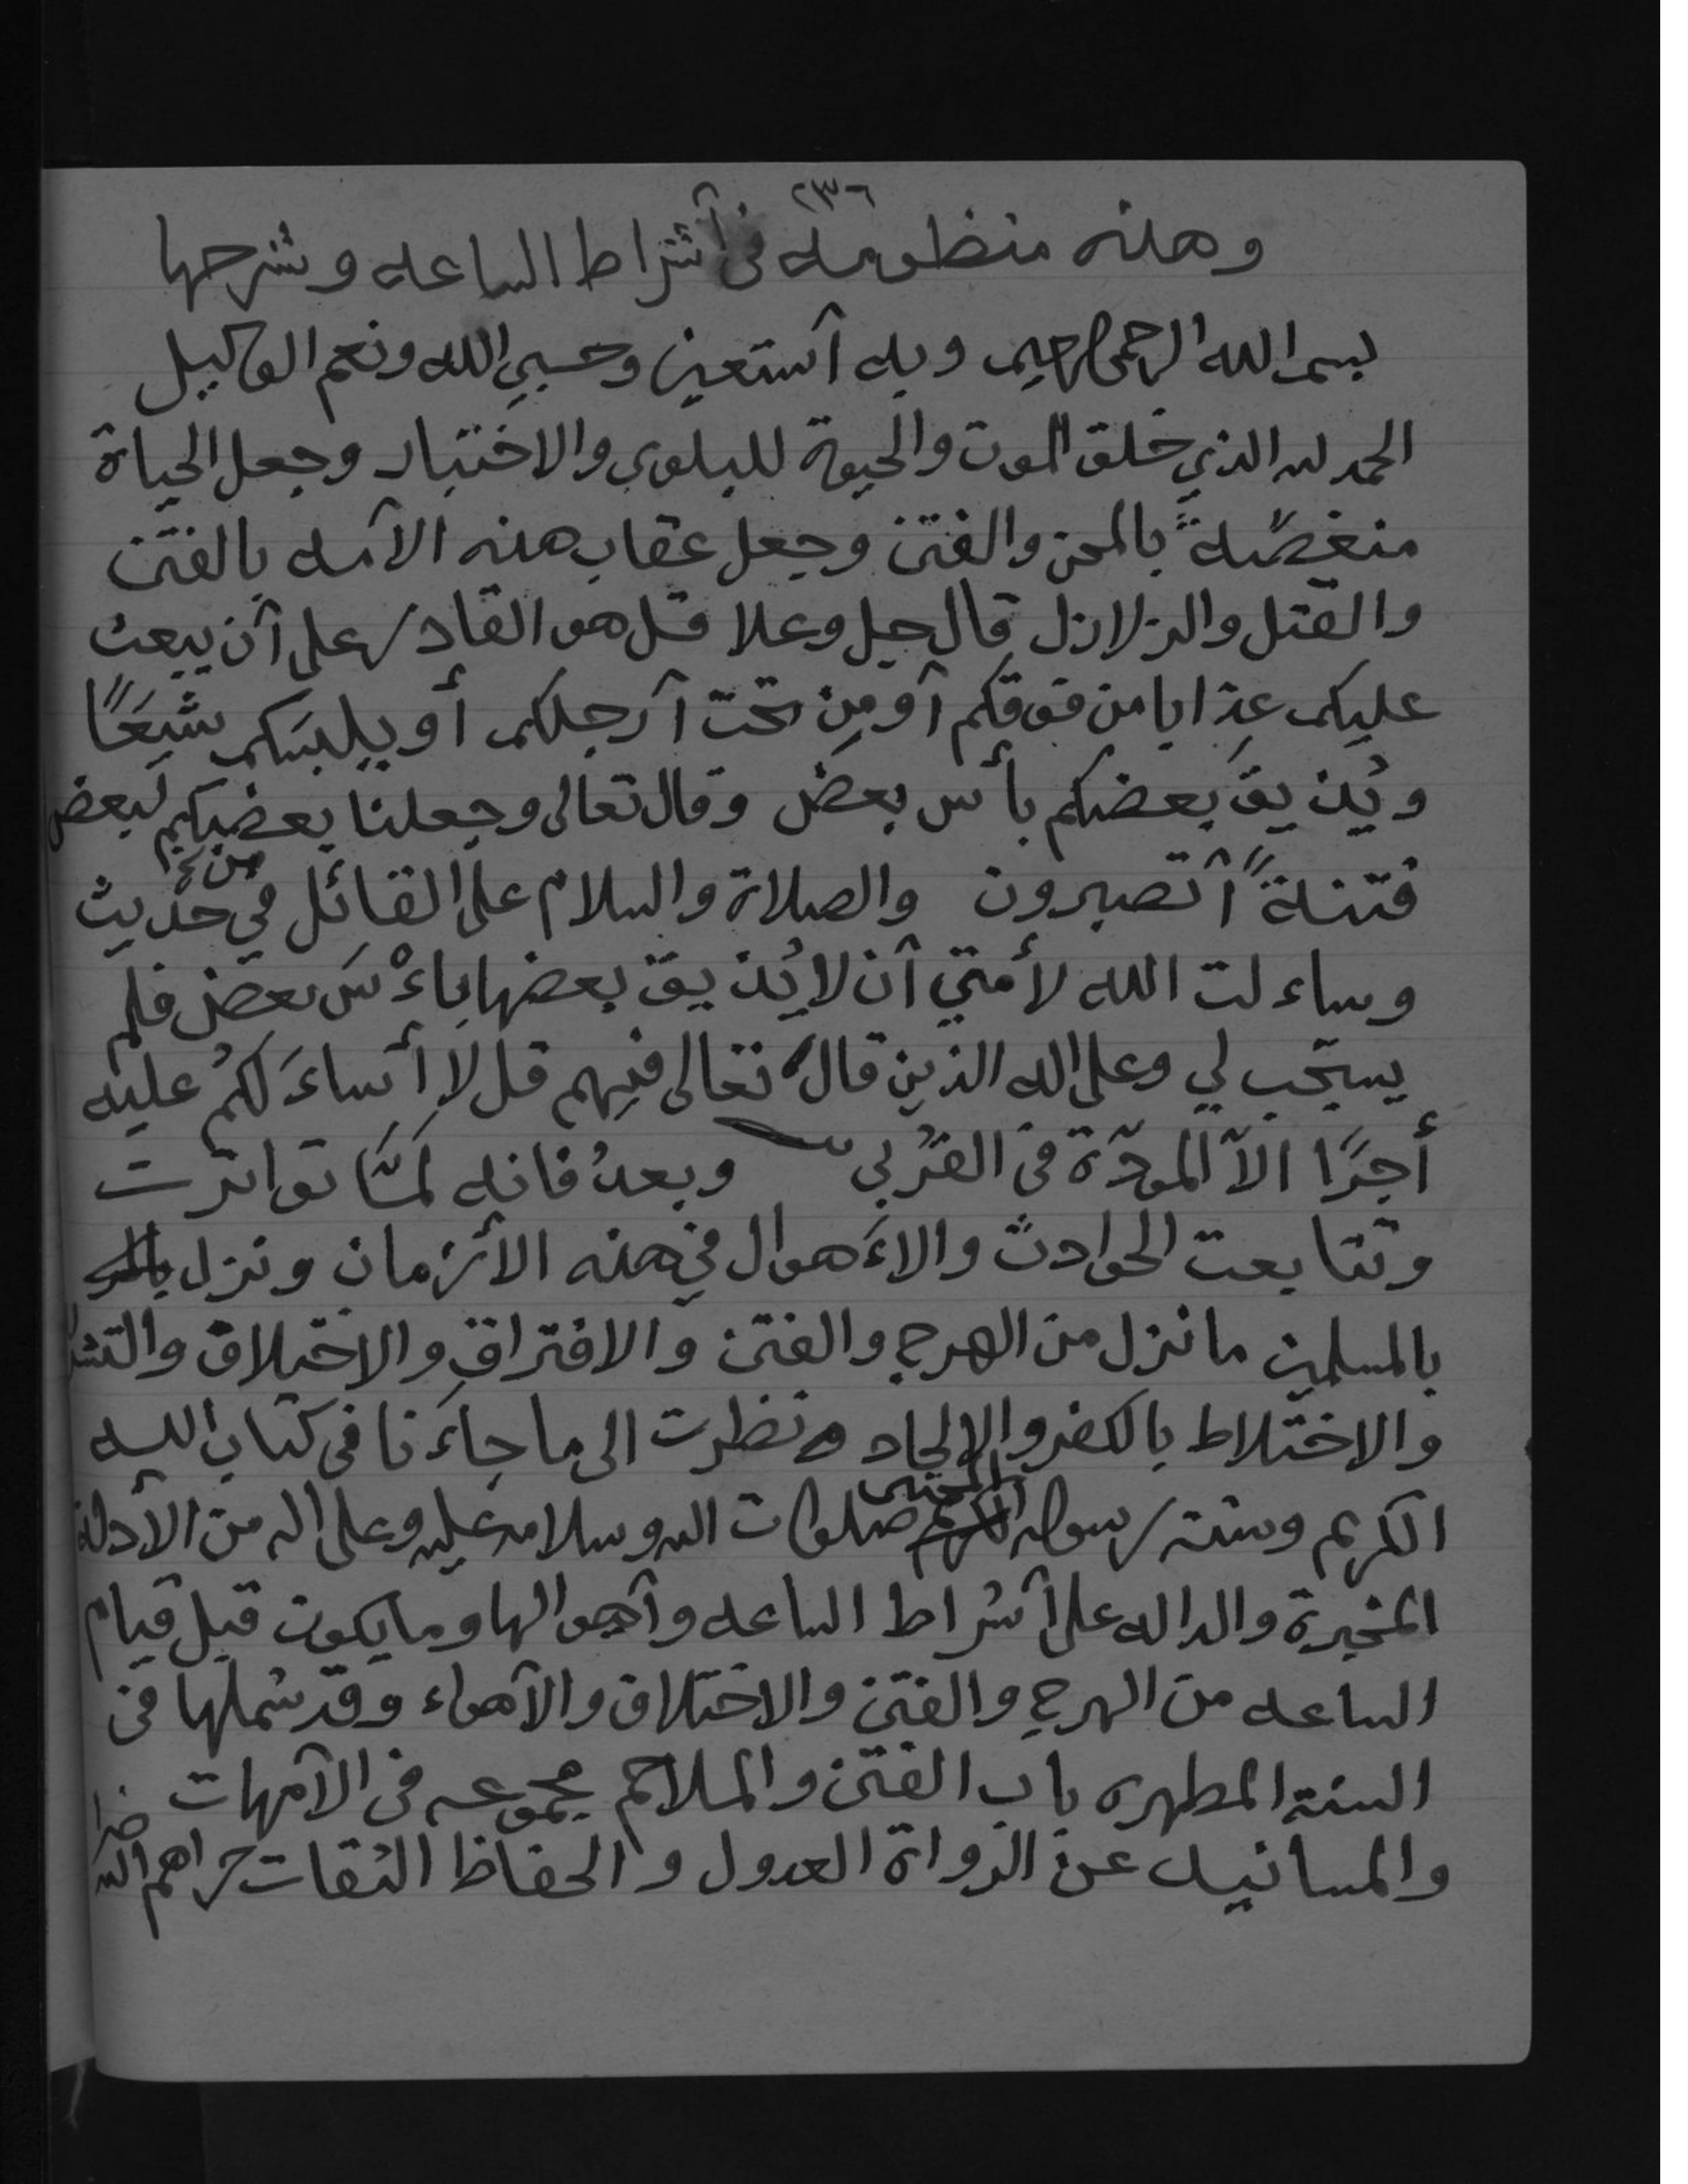 ٢٣٦
وهذه منظومه في أشراط الساعه وشرحها
بسم الله الرحمن الرحيم وبه أستعين وحسبي الله ونعم الوكيل
الحمد لله الذي خلق الموت والحيوة للبلوى والاختبار وجعل الحياة
منغصّة بالمحن والفتن وجعل عقاب هذه الأمه بالفتن
والقتل والزلازل قال جل وعلا قل هو القادر على أن يبعث
عليكم عذابا من فوقكم أو مِن تحت أرجلكم أو يلبسَكم شيَعًا
ويُذيقَ بعضكم بأس بعض وقال تعالى وجعلنا بعضكم لبعض
فتنةً أتصبرون والصلاة والسلام على القائل في حديث
وساءلت الله لأمتي أن لا يُذيق بعضها باءْسَ بعض فلم
يستجب لي وعلى اله الذين قال تعالى فيهم قل لا أساءَلكُم عليه
أجرًا الاّ المودّة في القُربى وبعدُ فانه لمّا تواترت
وتتابعت الحوادث والاءَهوال في هذه الأزمان ونزل
بالمسلمين ما نزل من الهرج والفتن والافتراق والاختلاف
والاختلاط بالكفر والإلحاد ونظرت الى ما جاءَنا في كتاب الله
الكريم وسنة رسوله المجتبى صلوات الله وسلامه عليه وعلى اله من الأدلة
المخبرة والداله على أشراط الساعه وأهوالها وما يكون قبل قيام
الساعه من الهرج والفتن والاختلاف والأهواء وقد شملها في
السنة المطهره باب الفتن والملاحم مجموعه في الأمهات
والمسانيد عن الرواة العدول والحفاظ الثقات جزاهم الله خيرا